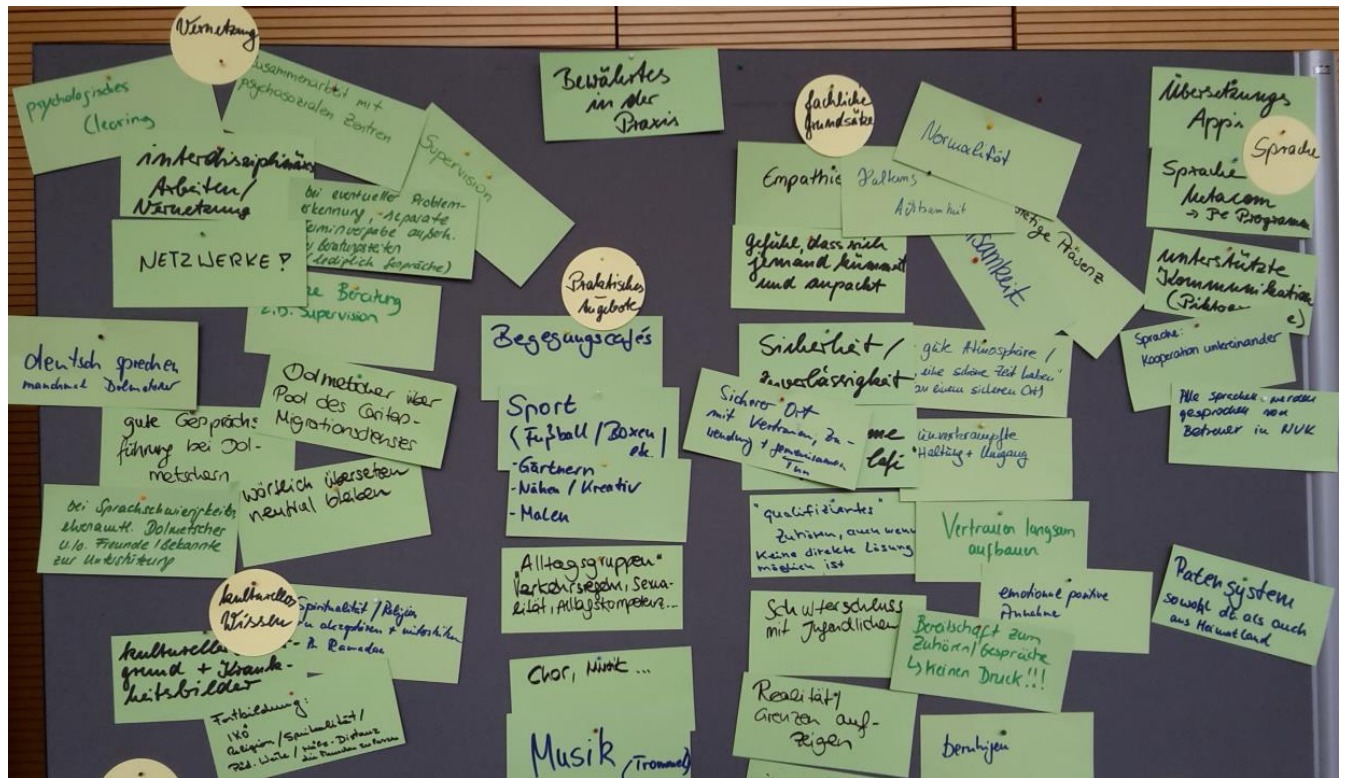 Vernetzung
psychologisches
Clearing
Zusammenarbeit mit
psychosozialen Zentren
Supervision
interdisziplinäres
Arbeiten/
Vernetzung
bei eventueller Problem-
erkennung, separate
Terminvergabe außerh.
Beratungszeiten
(lediglich Gespräche)
NETZWERKE!
Beratung
z.B. Supervision
deutsch sprechen
manchmal Dolmetscher
Dolmetscher über
Pool des Caritas-
Migrationsdienstes
gute Gesprächs
führung bei Dol-
metschern
wörtlich übersetzen
neutral bleiben
bei Sprachschwierigkeiten
ehrenamtl. Dolmetscher
u./o. Freunde/Bekannte
zur Unterstützung
kulturelles
Wissen
Spiritualität/Religion
zu akzeptieren +
Ramadan
kulturelle
grund + Krank-
heitsbilder
Fortbildung:
IKÖ
Religion/Spiritualität/
Päd. Werte/ Nähe-Distanz
Bewährtes
in der
Praxis
Praktisches
Angebote
Begegungscafés
Sport
(Fußball/Boxen/
etc.)
-Gärtnern
-Nähen/Kreativ
-Malen
„Alltagsgruppen"
Verkehrsregeln, Sexua-
lität, Alltagskompetenz...
Chor, Musik ...
Musik (Trommel)
fachliche
Grundsätze
Empathie
Haltung
Achtsamkeit
Normalität
Präsenz
samkeit
gefühl, dass sich
jemand kümmert
und anpackt
Sicherheit/
Zuverlässigkeit
gute Atmosphäre/
"eine schöne Zeit haben"
(an einem sicheren Ort)
Sicherer Ort
mit Vertrauen, Zu-
wendung + gemeinsamen
Tun
unverkrampfte
Haltung + Umgang
"qualifiziertes"
Zuhören, auch wenn
keine direkte Lösung
möglich ist
Vertrauen langsam
aufbauen
Schulterschluss
mit Jugendlichen
emotional positive
Annahme
Bereitschaft zum
Zuhören/Gespräche
↳ Keinen Druck!!!
Realität/
Grenzen auf-
zeigen
beruhigen
Übersetzungs
App's
Sprache
Sprache
Metacom
→ PC Programm
unterstützte
Kommunikation
Sprache:
Kooperation untereinander
Alle sprachen werden
gesprochen von
Betreuer in NVK
Patensystem
sowohl dt. als auch
aus Heimatland